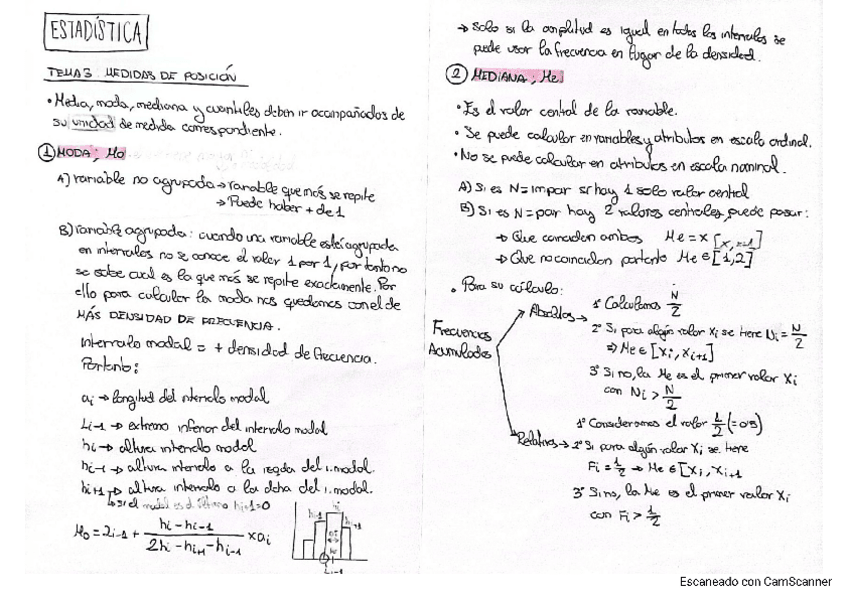 ESTADÍSTICA
TEMA 3. MEDIDAS DE POSICIÓN
• Media, moda, mediana y cuantiles deben ir acompañados de
su unidad de medida correspondiente.
① MODA; Mo
A) variable no agrupada → variable que más se repite
→ Puede haber + de 1
B) variable agrupada: cuando una variable esté agrupada
en intervalos no se conoce el valor 1 por 1, por tanto no
se sabe cual es la que más se repite exactamente. Por
ello para calcular la moda nos quedamos con el de
MÁS DENSIDAD DE FRECUENCIA.
Intervalo modal = + densidad de frecuencia.
Portanto:
ai → longitud del intervalo modal
Li-1 → extremo inferior del intervalo modal
hi → altura intervalo modal
hi-1 → altura intervalo a la izqda del i.modal.
hi+1 → altura intervalo a la dcha del i.modal.
↳ si el modal es el último hi+1=0
Mo = Li-1 + (hi - hi-1) / (2hi - hi+1 - hi-1) × ai
hi
hi-1
Li-1
→ Solo si la amplitud es igual en todos los intervalos se
puede usar la frecuencia en lugar de la densidad.
② MEDIANA; Me
• Es el valor central de la variable.
• Se puede calcular en variables y atributos en escala ordinal.
• No se puede calcular en atributos en escala nominal.
A) Si es N=impar si hay 1 solo valor central
B) Si es N=par hay 2 valores centrales, puede pasar:
→ Que coincidan ambos Me = x
→ Que no coincidan portanto Me ∈ [1,2]
• Para su cálculo:
Frecuencias
Acumuladas
Absolutas →
1º Calculamos N/2
2º Si para algún valor xi se tiene Ni = N/2
⇒ Me ∈ [xi, xi+1]
3º Si no, la Me es el primer valor xi
con Ni > N/2
Relativas →
1º Consideramos el valor 1/2 (=0'5)
2º Si para algún valor xi se tiene
Fi = 1/2 → Me ∈ [xi, xi+1
3º Si no, la Me es el primer valor xi
con Fi > 1/2
Escaneado con CamScanner